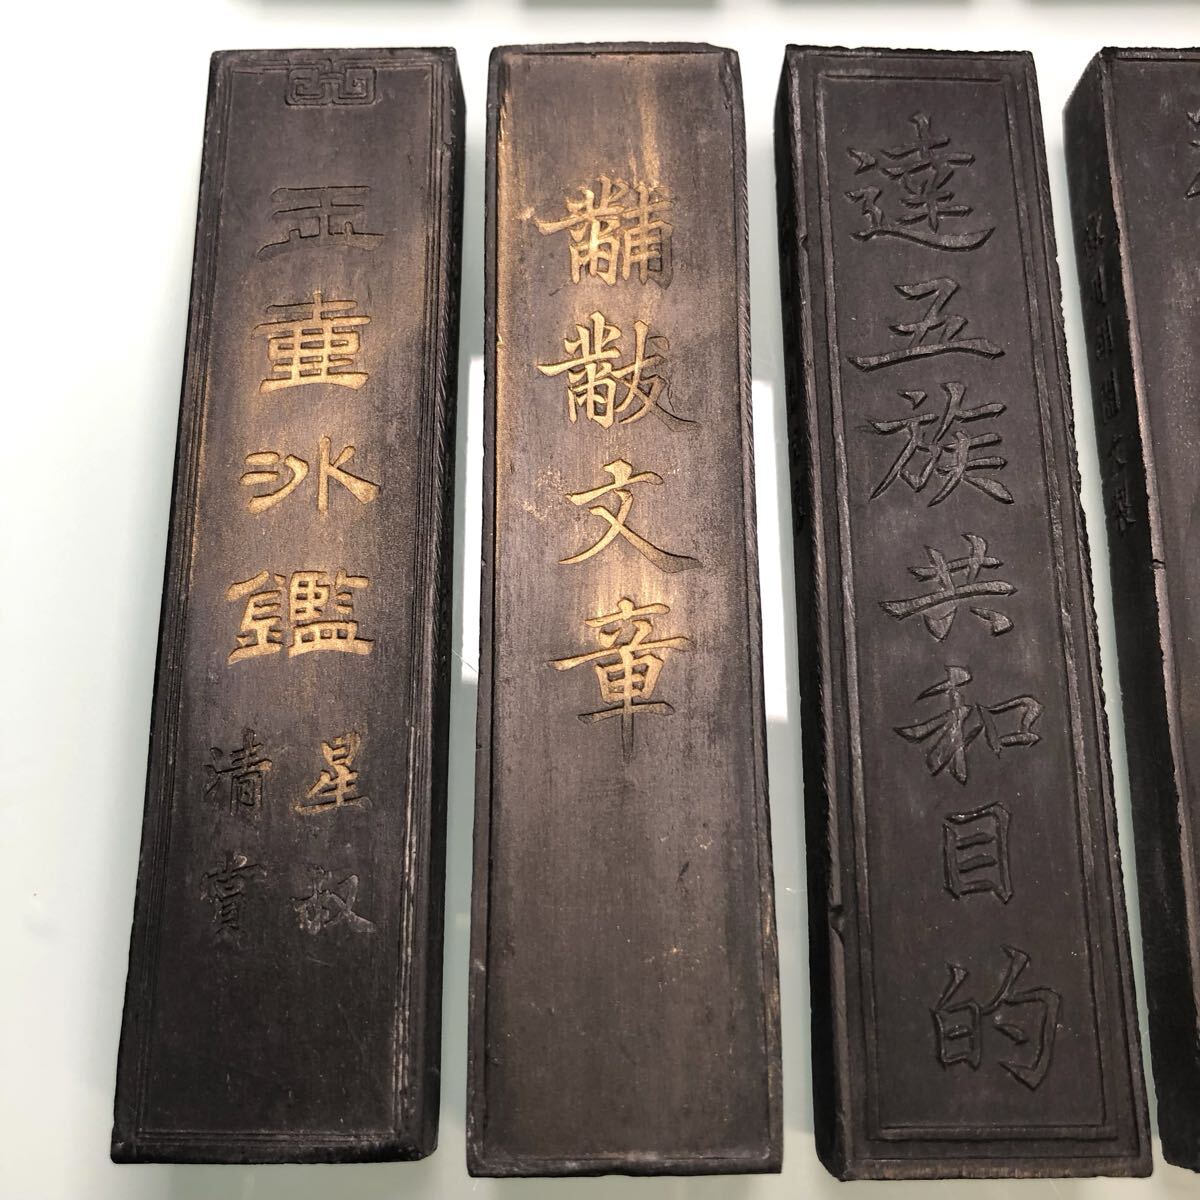 玉壺冰鑑
星叔
清賞
黼黻文章
達五族共和目的